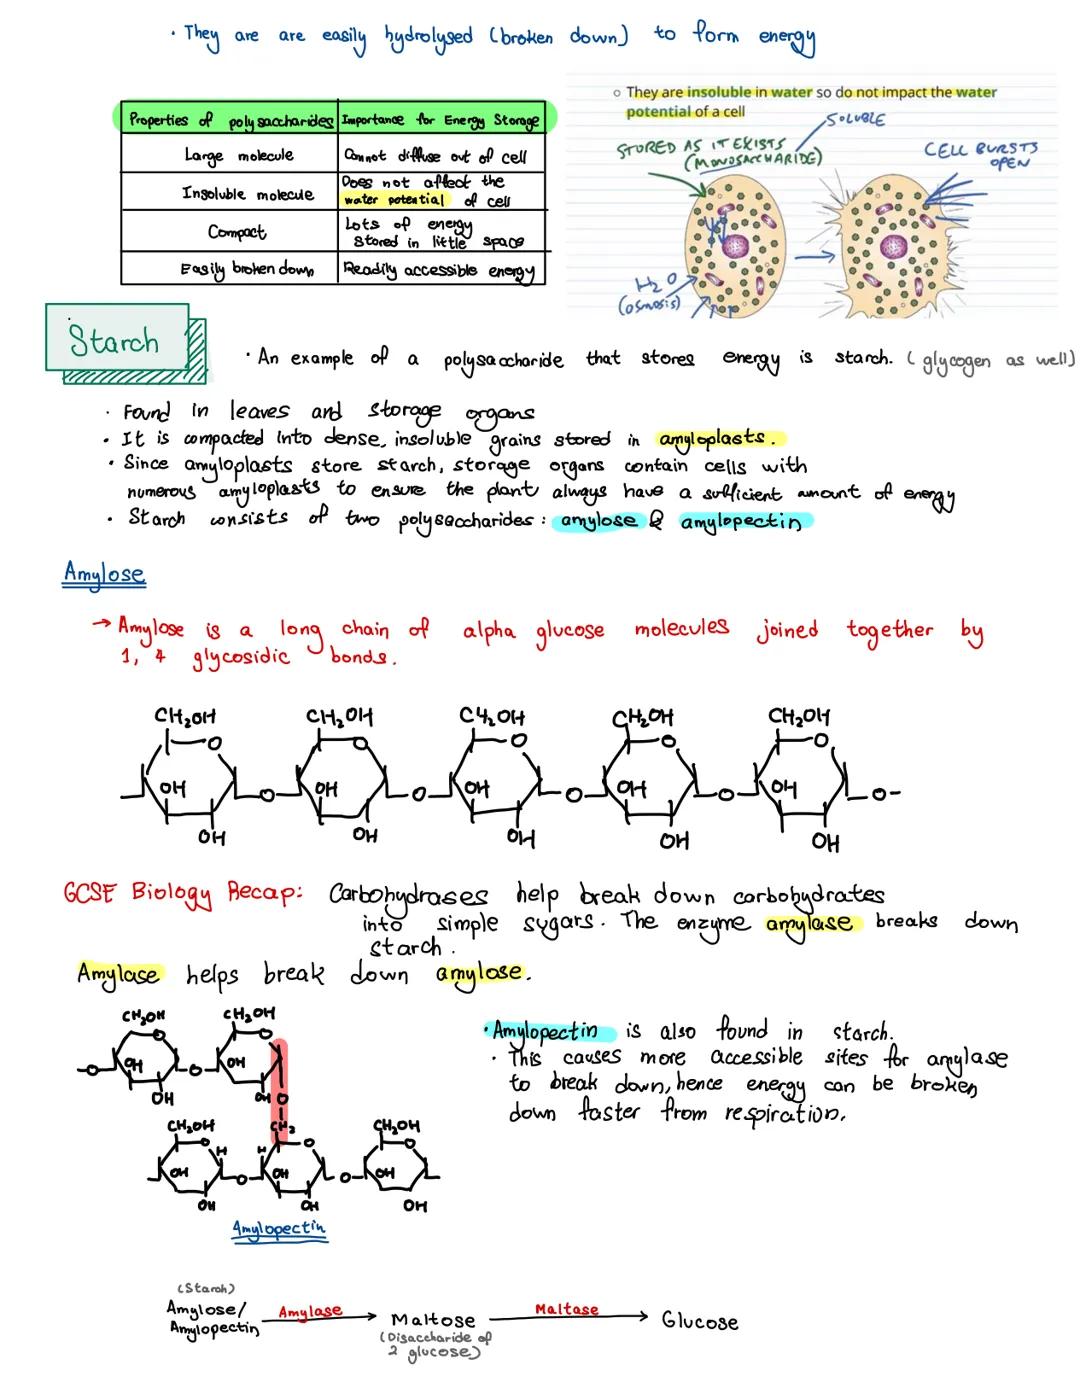 • They are are easily hydrolysed (broken down) to form energy
Properties of polysaccharides Importance for Energy Storage
Large molecule Cannot diffuse out of cell
Insoluble molecule Does not affect the
water potential of cell
Compact Lots of energy
stored in little space
Easily broken down Readily accessible energy
○ They are insoluble in water so do not impact the water
potential of a cell
SOLUBLE
STORED AS IT EXISTS
(MONOSACCHARIDE)
CELL BURSTS
OPEN
H₂O
(osmosis)
Starch
• An example of a polysaccharide that stores energy is starch. (glycogen as well)
• Found in leaves and storage organs
• It is compacted into dense, insoluble grains stored in amyloplasts.
• Since amyloplasts store starch, storage organs contain cells with
numerous amyloplasts to ensure the plant always have a sufficient amount of energy
• Starch consists of two polysaccharides: amylose & amylopectin
Amylose
→ Amylose is a long chain of alpha glucose molecules joined together by
1, 4 glycosidic bonds.
CH₂OH CH₂OH CH₂OH CH₂OH CH₂OH
O O O O O
OH OH OH OH OH
O O O O O
OH OH OH OH OH
GCSE Biology Recap: Carbohydrases help break down carbohydrates
into simple sygars. The enzyme amylase breaks down
starch.
Amylase helps break down amylose.
CH₂OH CH₂OH
O O
OH OH
O O
OH OH O
CH₂OH CH₂ CH₂OH
O H H O O
OH OH OH
O O
OH OH OH
Amylopectin
• Amylopectin is also found in starch.
• This causes more accessible sites for amylase
to break down, hence energy can be broken
down faster from respiration.
(Starch)
Amylose/
Amylopectin
Amylase
Maltose
(Disaccharide of
2 glucose)
Maltase
Glucose